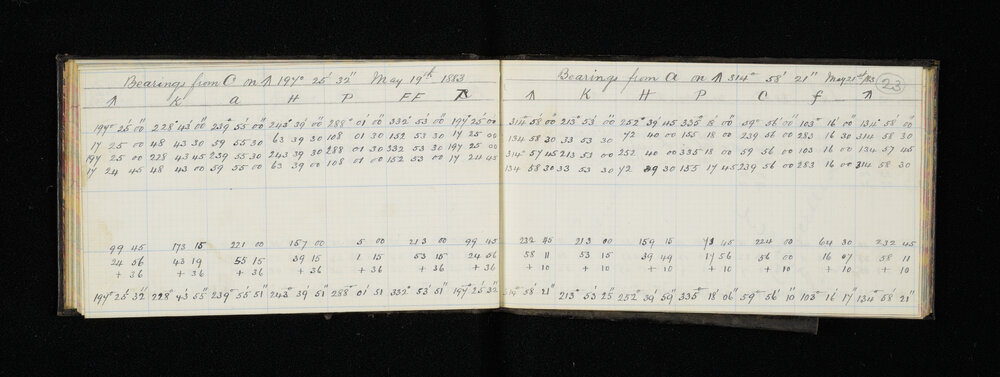 Bearings from C on ↑ 197° 25' 32" May 19th 1883
↑ K a H P FF ↑
197° 25' 00" 228° 43' 00" 239° 55' 00" 243° 39' 00" 288° 01' 00" 332° 53' 00" 197° 25' 00"
17 25 00 48 43 30 59 55 30 63 39 30 108 01 30 152 53 30 17 25 00
197 25 00 228 43 45 239 55 30 243 39 30 288 01 30 332 53 30 197 25 00
17 24 45 48 43 00 59 55 00 63 39 00 108 01 00 152 53 00 17 24 45
99 45 173 15 221 00 157 00 5 00 213 00 99 45
24 56 43 19 55 15 39 15 1 15 53 15 24 56
+ 36 + 36 + 36 + 36 + 36 + 36 + 36
197° 25' 32" 228° 43' 55" 239° 55' 51" 243° 39' 51" 288° 01' 51 332° 53' 51" 197° 25' 32"
Bearings from a on ↑ 314° 58' 21" May 21st 1883
23
↑ K H P C f ↑
314° 58' 00" 213° 53' 00" 252° 39' 45 335° 18' 00" 59° 56' 00" 103° 16' 00" 134° 58' 00"
134 58 30 33 53 30 72 40 00 155 18 00 239 56 00 283 16 30 314 58 30
314° 57 45 213 53 00 252 40 00 335 18 00 59 56 00 103 16 00 134 57 45
134 58 30 33 53 30 72 39 30 155 17 45 239 56 00 283 16 00 314 58 30
232 45 213 00 159 15 73 45 224 00 64 30 232 45
58 11 53 15 39 49 17 56 56 00 16 07 58 11
+ 10 + 10 + 10 + 10 + 10 + 10
58' 21" 213° 53' 25" 252° 39' 59" 335° 18' 06" 59° 56' 10" 103° 16' 17" 134° 58' 21"